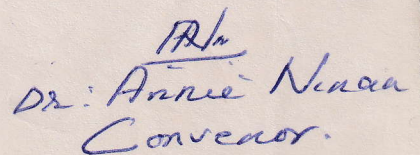 Dr: Annie Ninan
Convenor.